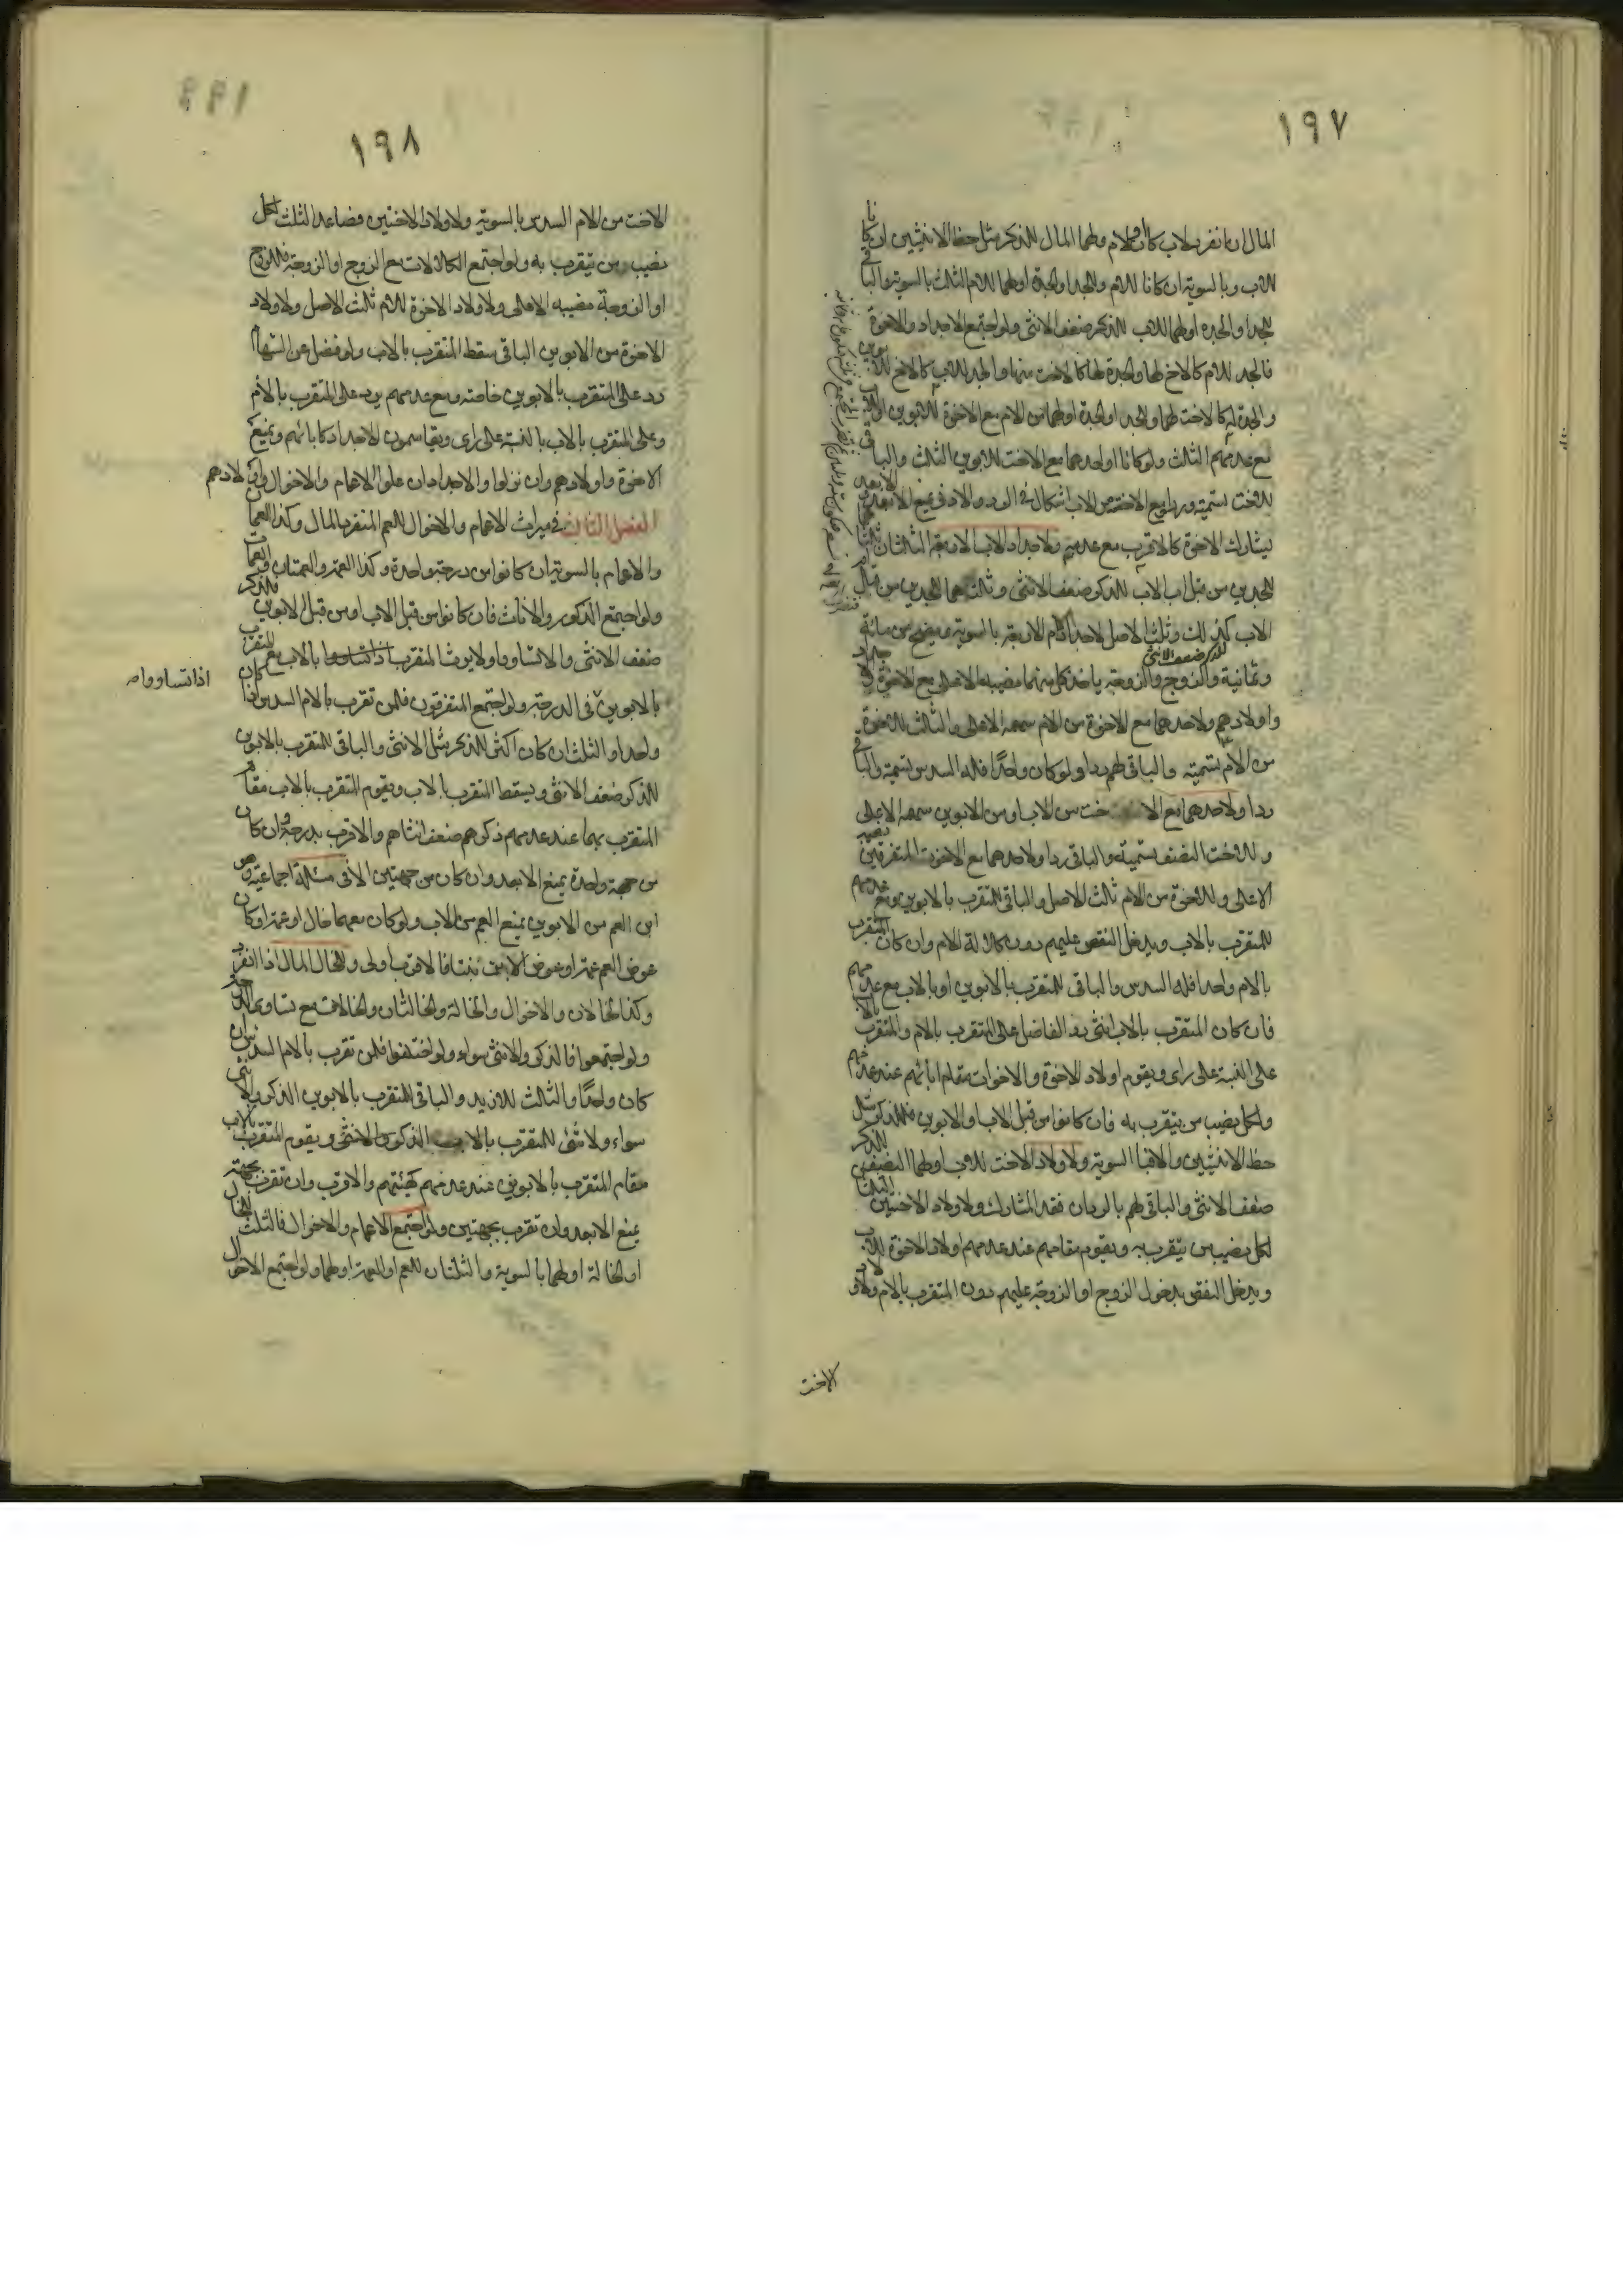 ١٩٧
المال ان انفرد لاب كان او لام ولهما المال للذكر مثل حظ الانثيين ان كانا
للاب وبالسوية ان كانا للام وللجد او الجدة او لهما للام الثلث بالسوية والباقي
للجد او الجدة او لهما للاب للذكر ضعف الانثى ولو اجتمع الاجداد والاخوة
فالجد للام كالاخ لها والجدة لها كالاخت منها والجد للاب كالاخ للابوين
والجدة له كالاخت لهما وللجد او الجدة او لهما من الام مع الاخوة للابوين او للاب
مع عدمهم الثلث ولو كانا او احدهما مع الاخت للابوين الثلث والباقي
للاخت تسمية وردا ومع الاخت من الاب اشكال في الرد والادنى يمنع الابعد
يشارك الاخوة كالاقرب مع عدمهم ولاجداد الاب الاربعة الثلثان ثلثا
للجدين من قبل اب الاب للذكر ضعف الانثى وثلثهما للجدين من قبل ام
الاب كذلك وثلث الاصل لاجداد الام الاربعة بالسوية ويصح من مائة
للذكر ضعف الانثى
وثمانية والزوج والزوجة ياخذ كل منهما نصيبه الاعلى مع الاخوة
واولادهم ولاحدهما مع الاخوة من الام سهمه الاعلى والثلث للاخوة
من الام تسمية والباقي لهم ردا ولو كان واحدا فله السدس تسمية والباقي
ردا ولاحدهما مع الاخت من الاب او من الابوين سهمه الاعلى
وللاخت النصف تسمية والباقي ردا ولاحدهما مع الاخوة المتفرقين نصيبه
الاعلى وللاخوة من الام ثلث الاصل والباقي للمتقرب بالابوين ومع عدمهم
للمتقرب بالاب ويدخل النقص عليهم دون كلالة الام وان كان المتقرب
بالام واحدا فله السدس والباقي للمتقرب بالابوين او بالاب مع عدمهم
فان كان المتقرب بالاب انثى رد الفاضل على المتقرب بالام والمتقرب بالاب
على النسبة على راى ويقوم اولاد الاخوة والاخوات مقام ابائهم عند عدمهم
ولكل نصيب من يتقرب به فان كانوا من قبل الاب والابوين فللذكر مثل
حظ الانثيين والا فبالسوية ولاولاد الاخت للاب او لهما النصف للذكر
ضعف الانثى والباقي لهم بالرد ان فقد المشارك ولاولاد الاختين الثلثان
لكل نصيب من يتقرب به ويقوم مقامهم عند عدمهم اولاد الاخوة للاب
ويدخل النقص بدخول الزوج او الزوجة عليهم دون المتقرب بالام ولاولاد
الاخت
١٩٨
الاخت من الام السدس بالسوية ولاولاد الاختين فصاعدا الثلث لكل
نصيب من يتقرب به ولو اجتمع الكلالات مع الزوج او الزوجة فللزوج
او الزوجة نصيبه الاعلى ولاولاد الاخوة للام ثلث الاصل ولاولاد
الاخوة من الابوين الباقي سقط المتقرب بالاب ولو فضل عن السهام
رد على المتقرب بالابوين خاصة ومع عدمهم يرد على المتقرب بالام
وعلى المتقرب بالاب بالنسبة على راى ويقاسمون الاجداد كابائهم ويمنع
الاخوة واولادهم وان نزلوا والاجداد ان علوا الاعمام والاخوال واولادهم
الفصل الثالث في ميراث الاعمام والاخوال للعم المنفرد المال وكذا العمان
والاعمام بالسوية ان كانوا من درجة واحدة وكذا العمة والعمتان والعمات
ولو اجتمع الذكور والاناث فان كانوا من قبل الاب او من قبل الابوين فللذكر
ضعف الانثى والا تساووا ولا يرث المتقرب بالاب مع المتقرب
بالابوين في الدرجة ولو اجتمع المتفرقون فلمن تقرب بالام السدس ان كان
اذا تساووا
واحدا والثلث ان كان اكثر للذكر مثل الانثى والباقي للمتقرب بالابوين
للذكر ضعف الانثى ويسقط المتقرب بالاب ويقوم المتقرب بالاب مقام
المتقرب بهما عند عدمهم ذكرهم ضعف انثاهم والاقرب بدرجة وان كان
من جهة واحدة يمنع الابعد وان كان من جهتين الا في مسئلة اجماعية وهو
ابن العم من الابوين يمنع العم من الاب ولو كان معهما خال او عمة او كان
عوض العم عمة او عوض الابن بنتا فالاقرب اولى وللخال المال اذا انفرد
وكذا الخالان والاخوال والخالة والخالتان والخالات مع تساوى الدرجة
ولو اجتمعوا فالذكر والانثى سواء ولو اختلفوا فلمن تقرب بالام السدس ان
كان واحدا والثلث للازيد والباقي للمتقرب بالابوين الذكر والانثى
سواء ولا شئ للمتقرب بالاب الذكور والانثى ويقوم المتقرب بالاب
مقام المتقرب بالابوين عند عدمهم كهيئتهم والاقرب وان تقرب بجهة
يمنع الابعد وان تقرب بجهتين ولو اجتمع الاعمام والاخوال فالثلث للخال
او الخالة او لهما بالسوية والثلثان للعم او للعمة او لهما ولو اجتمع الاخوال